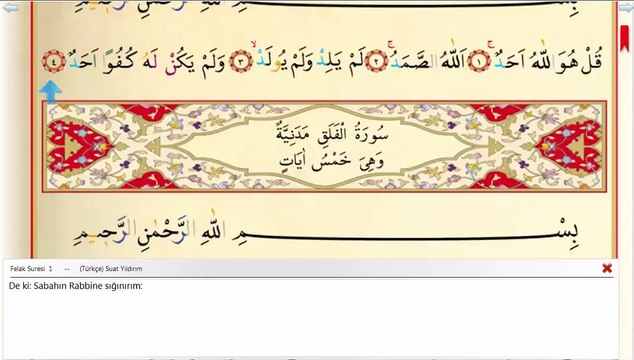 قُلْ هُوَ اللّٰهُ اَحَدٌۚ ﴿١﴾ اَللّٰهُ الصَّمَدُۚ ﴿٢﴾ لَمْ يَلِدْ وَلَمْ يُولَدْۙ ﴿٣﴾ وَلَمْ يَكُنْ لَهُ كُفُوًا اَحَدٌ ﴿٤﴾
سُورَةُ الْفَلَقِ مَدَنِيَّةٌ
وَهِىَ خَمْسُ اٰيَاتٍ
بِسْمِ اللّٰهِ الرَّحْمٰنِ الرَّحِيمِ
Felak Suresi 1 -- (Türkçe) Suat Yıldırım
De ki: Sabahın Rabbine sığınırım: